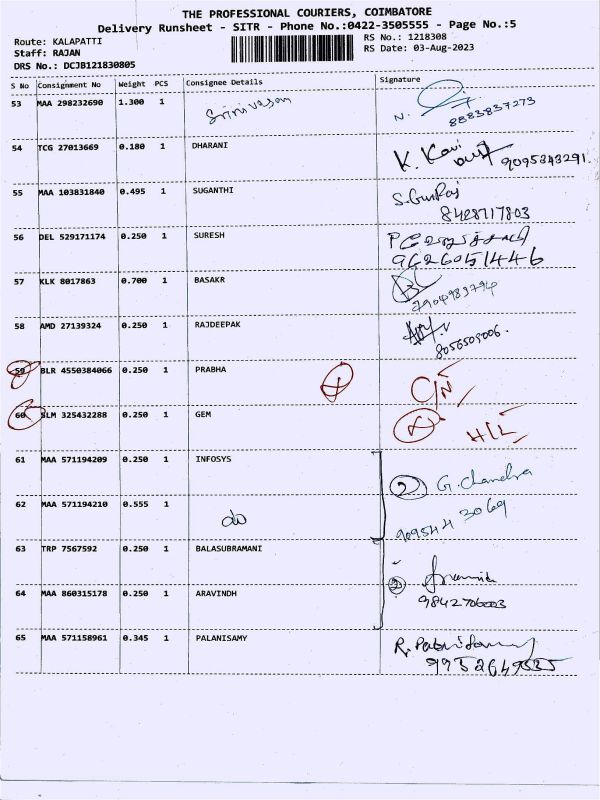 THE PROFESSIONAL COURIERS, COIMBATORE
Delivery Runsheet - SITR - Phone No.:0422-3505555 - Page No.:5
Route: KALAPATTI
RS No.: 1218308
Staff: RAJAN
RS Date: 03-Aug-2023
DRS No.: DCJB121830805
S No Consignment No Weight PCS Consignee Details Signature
53 MAA 298232690 1.300 1 Srinivasan N.
8883837273
54 TCG 27013669 0.180 1 DHARANI K. Kavi
9095343291.
55 MAA 103831840 0.495 1 SUGANTHI S.GuRaj
8428717803
56 DEL 529171174 0.250 1 SURESH
9626051446
57 KLK 8017863 0.700 1 BASAKR
7904983794
58 AMD 27139324 0.250 1 RAJDEEPAK
8056505006.
59 BLR 4550384066 0.250 1 PRABHA C/N
60 SLM 325432288 0.250 1 GEM H/L
61 MAA 571194209 0.250 1 INFOSYS 2 G. Chandra
62 MAA 571194210 0.555 1 do
909544 3069
63 TRP 7567592 0.250 1 BALASUBRAMANI
64 MAA 860315178 0.250 1 ARAVINDH 2 Aravindh
9842706003
65 MAA 571158961 0.345 1 PALANISAMY R. Palanisamy
9952649535